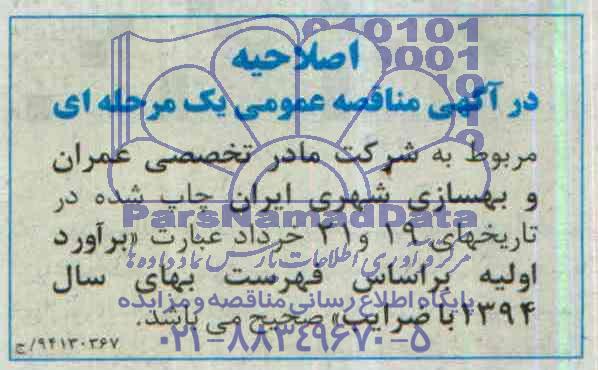 اصلاحیه
در آگهی مناقصه عمومی یک مرحله ای
مربوط به شرکت مادر تخصصی عمران
و بهسازی شهری ایران چاپ شده در
تاریخهای ۱۹ و ۲۱ خرداد عبارت «برآورد
اولیه براساس فهرست بهای سال
۱۳۹۴ با ضرایب» صحیح می باشد.
۹۴۱۳۰۳۶۷/ج
ParsNamadData
مرکز فرآوری اطلاعات پارس نماد داده ها
پایگاه اطلاع رسانی مناقصه و مزایده
۰۲۱-۸۸۳۴۹۶۷۰-۵